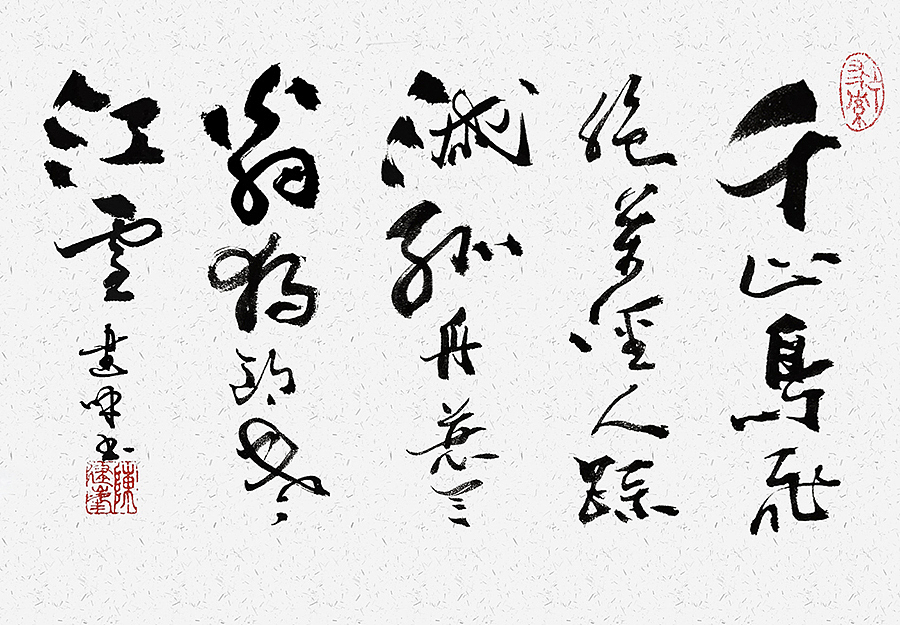 千山鳥飛
絕萬徑人踪
滅孤舟蓑笠
翁獨釣寒
江雪
建峰书